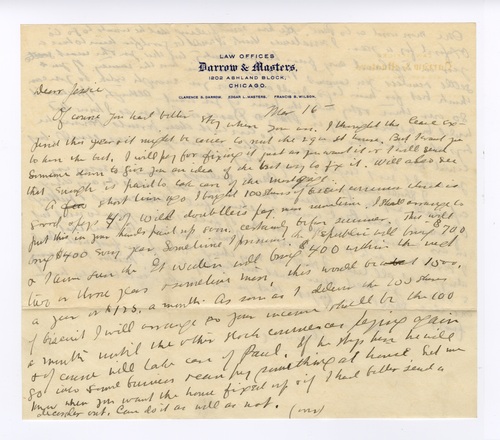 LAW OFFICES
Darrow & Masters,
1202 ASHLAND BLOCK,
CHICAGO.
CLARENCE S. DARROW. EDGAR L. MASTERS. FRANCIS S. WILSON.
Dear Jessie
Mar 16 —
Of course you had better stay where you are, I thought the lease ex-
pired this year & it might be easier to rent the 2 than at home. But I want you
to have the best. I will pay for fixing it just as you want it or I will send
someone down to give you an idea of the best way to fix it. Will also see
that enough is paid to take care of the mortgage
A few short time ago I bought 100 shares of biscuit which is
good & pays 4 & will doubtless pay more sometime, I shall arrange to
put this in your hands pretty soon. certainly before summer. This will
bring $400 every year. Sometime I presume the will bring $700
& I am sure the will bring $400 within the next
two or three years & sometime more, this would be about 1500.
a year or $125. a month. As soon as I deliver the 100 shares
of biscuit I will arrange so your income shall be the 100
a month until the other stock commences paying again
& of course will take care of Paul. If he stays here he will
go into some business reasonably something at home. Let me
know when you want the house fixed up & if I had better send a
decorator out. Can do it as well as not.
(over)